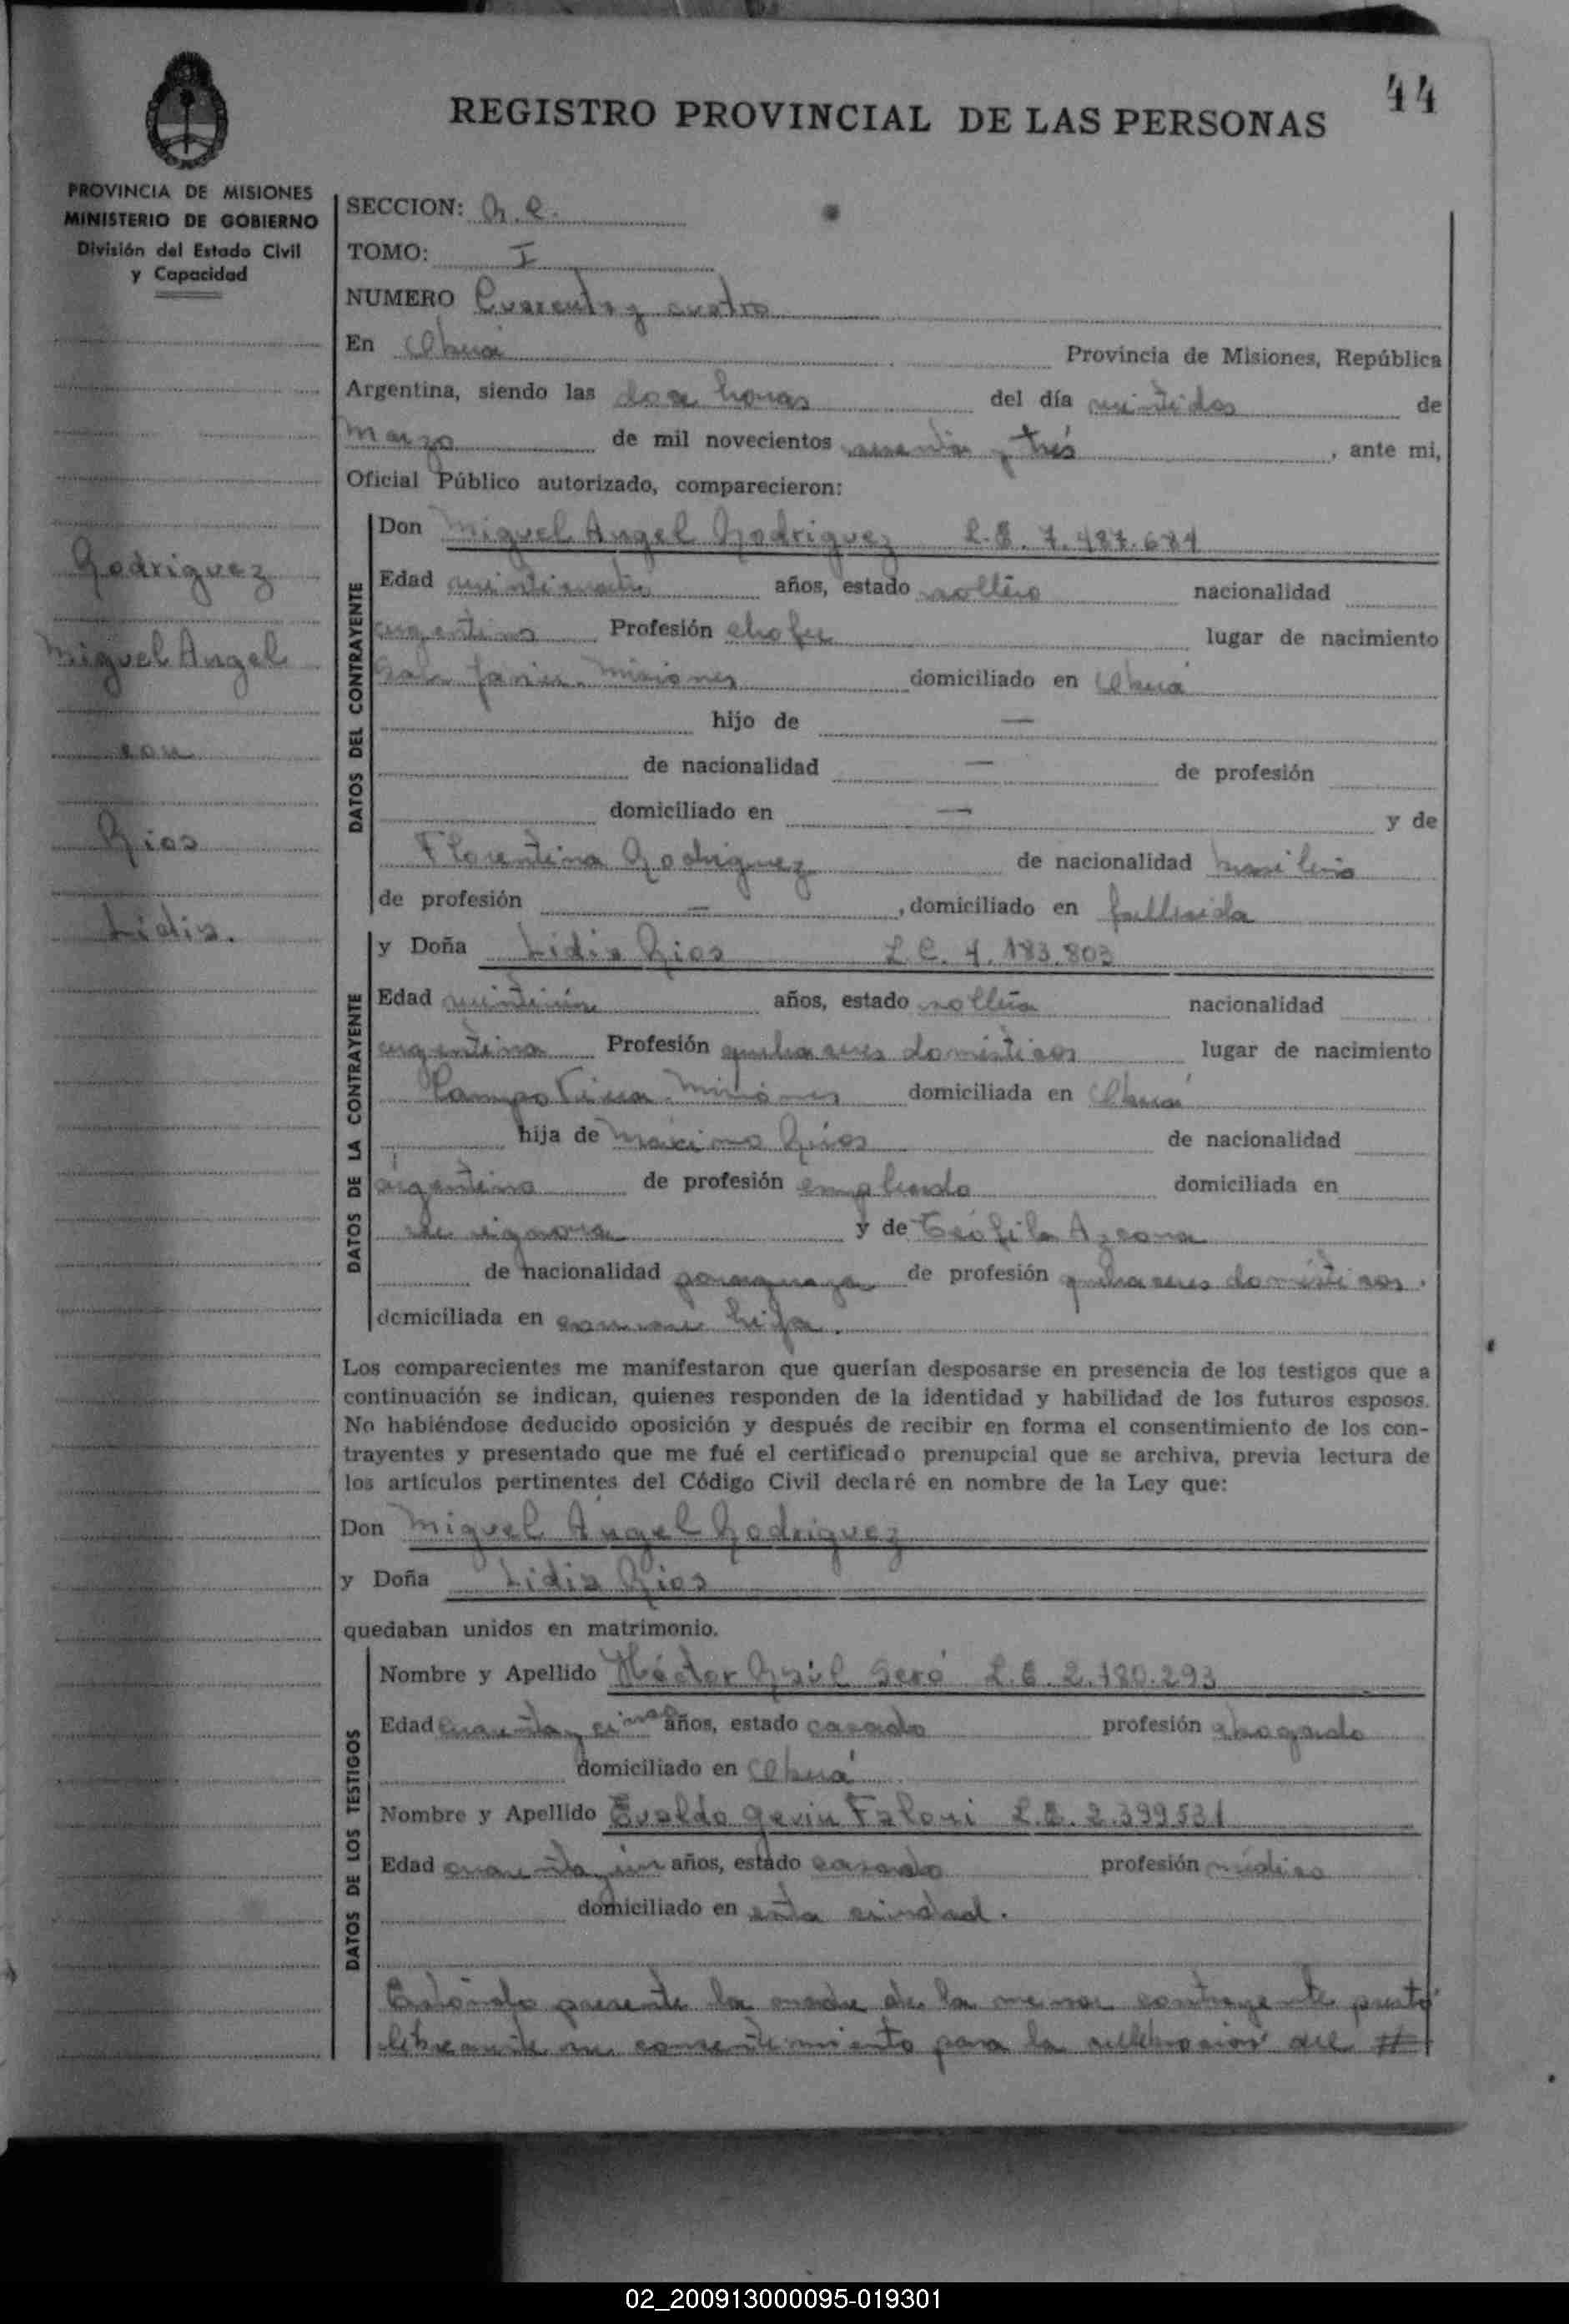 44
REGISTRO PROVINCIAL DE LAS PERSONAS
PROVINCIA DE MISIONES
MINISTERIO DE GOBIERNO
División del Estado Civil
y Capacidad
Rodriguez
Miguel Angel
con
Rios
Lidia.
SECCION: R.C.
TOMO: I
NUMERO Cuarenta y cuatro
En Oberá Provincia de Misiones, República
Argentina, siendo las doce horas del día veintidos de
marzo de mil novecientos sesenta y trés, ante mi,
Oficial Público autorizado, comparecieron:
DATOS DEL CONTRAYENTE
Don Miguel Angel Rodriguez L.E. 7.487.684
Edad veinticuatro años, estado soltero nacionalidad
argentino Profesión chofer lugar de nacimiento
San Javier. Misiones domiciliado en Oberá
hijo de —
de nacionalidad — de profesión
domiciliado en — y de
Florentina Rodriguez de nacionalidad brasileña
de profesión —, domiciliado en fallecida
DATOS DE LA CONTRAYENTE
y Doña Lidia Rios L.C. 4.183.803
Edad veintiún años, estado soltera nacionalidad
argentina Profesión quehaceres domésticos lugar de nacimiento
Campo Viera. Misiones domiciliada en Oberá
hija de Máximo Ríos de nacionalidad
argentino de profesión empleado domiciliada en
se ignora y de Teófila Azcona
de nacionalidad paraguaya de profesión quehaceres domésticos.
domiciliada en con su hija.
Los comparecientes me manifestaron que querían desposarse en presencia de los testigos que a
continuación se indican, quienes responden de la identidad y habilidad de los futuros esposos.
No habiéndose deducido oposición y después de recibir en forma el consentimiento de los con-
trayentes y presentado que me fué el certificado prenupcial que se archiva, previa lectura de
los artículos pertinentes del Código Civil declaré en nombre de la Ley que:
Don Miguel Angel Rodriguez
y Doña Lidia Rios
quedaban unidos en matrimonio.
DATOS DE LOS TESTIGOS
Nombre y Apellido Héctor Raúl Seró L.E. 2.780.293
Edad cuarenta y cinco años, estado casado profesión abogado
domiciliado en Oberá
Nombre y Apellido Evaldo Gevin Faloni L.E. 2.399531
Edad cuarenta y un años, estado casado profesión médico
domiciliado en esta ciudad.
Estando presente la madre de la menor contrayente prestó
libremente su consentimiento para la celebración del #
02_200913000095-019301